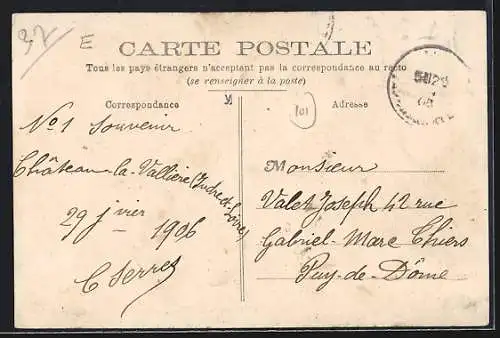 37
E
CARTE POSTALE
Tous les pays étrangers n'acceptent pas la correspondance au recto
(se renseigner à la poste)
Correspondance
101
Adresse
No 1 Souvenir
Château-la-Vallière (Indre et Loire)
29 jvier 1906
C Serres
Monsieur
Valet Joseph 42 rue
Gabriel-Marc Thiers
Puy-de-Dôme